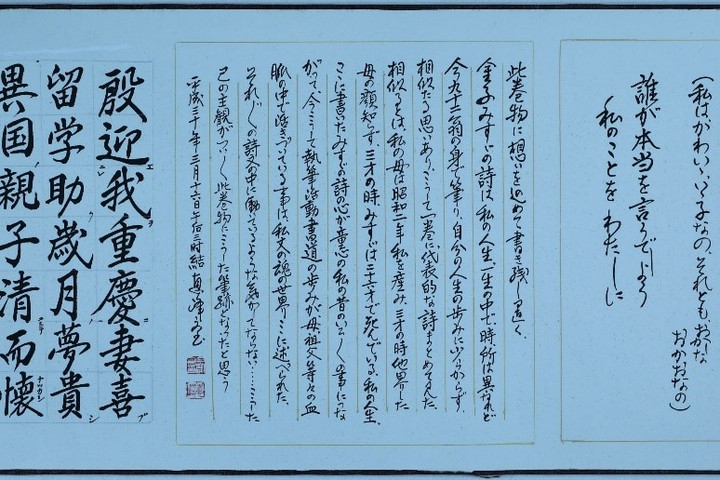 (私はがわいい、いい子なの、それとも、おかな
おかおなの)
誰が本当を言うでしょう
私のことを わたしに
此巻物に想いを込めて書き残し置く、
金子みすゞの詩は、私の人生、一生の中で、時所は異なれど
今九十二翁の身で筆り、自分の人生の歩みに少なからず、
相似たる思いあり、こうして一巻に代表的な詩まとめてみんだ、
相似たるは、私の母は昭和二年私を産み、三才の時他界した
母の顔知らず、三才の時みすゞは二六才で死んでいる、私の人生、
ここに書いたみすゞの詩の心が童心の私の昔のいろいろの事につな
がって、今こうして執筆活動書道の歩みが母、祖父等々の血
脈の中で活きづいている事は、私文の魂の世界ここに述べられた、
それぞれの詩文の中に働いているような気がしてならない……こうした
己の主観がつよく此巻物にこうした筆跡となったと思う
平成三十年三月十六日午后三時結
殷迎我重慶妻喜
留学助歳月夢貴
異国親子清而懐